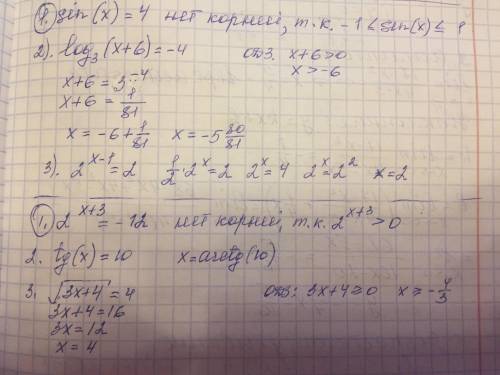 1. sin(x) = 4 нет корней, т.к. -1 ≤ sin(x) ≤ 1
2). log₃(x+6) = -4 ОДЗ. x+6>0
x+6 = 3⁻⁴ x>-6
x+6 = 1/81
x = -6 + 1/81 x = -5 80/81
3). 2^(x-1) = 2 1/2 · 2^x = 2 2^x = 4 2^x = 2^2 x = 2
1. 2^(x+3) = -12 нет корней, т.к. 2^(x+3) > 0
2. tg(x) = 10 x = arctg(10)
3. √(3x+4) = 4 ОДЗ: 3x+4 ≥ 0 x ≥ -4/3
3x+4 = 16
3x = 12
x = 4